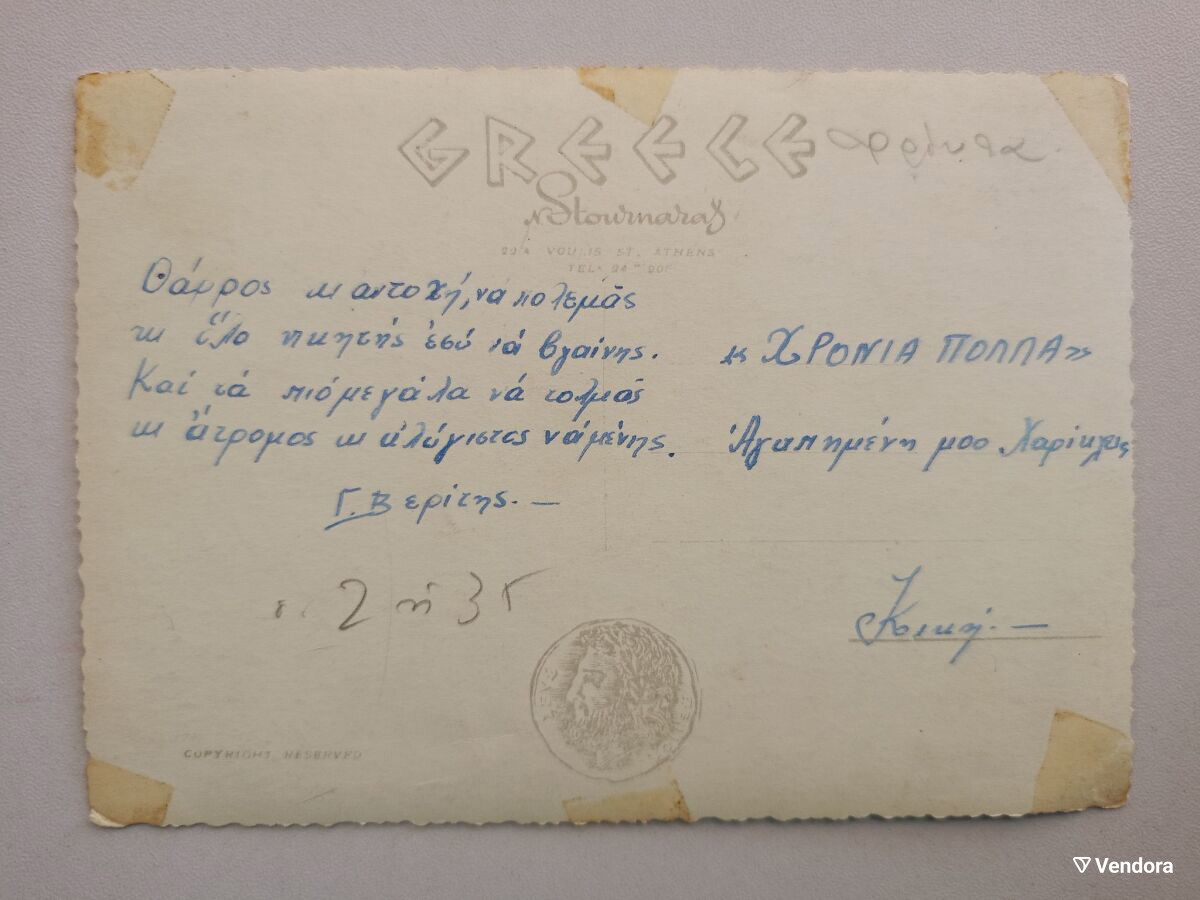 GREECE
N Stournaras
29A VOULIS ST. ATHENS
TEL.
Θάρρος κι αντοχή, νά πολεμᾶς
κι ὅλο νικητής ἐσύ νά βγαίνης.
Καί τά πιό μεγάλα νά τολμᾶς
κι ἄτρομος κι ἀλύγιστος νά μένης.
Γ. Βερίτης. —
« ΧΡΟΝΙΑ ΠΟΛΛΑ »
Ἀγαπημένη μου Χαρίκλεια
Κική. —
2 ή 3
COPYRIGHT RESERVED
Vendora